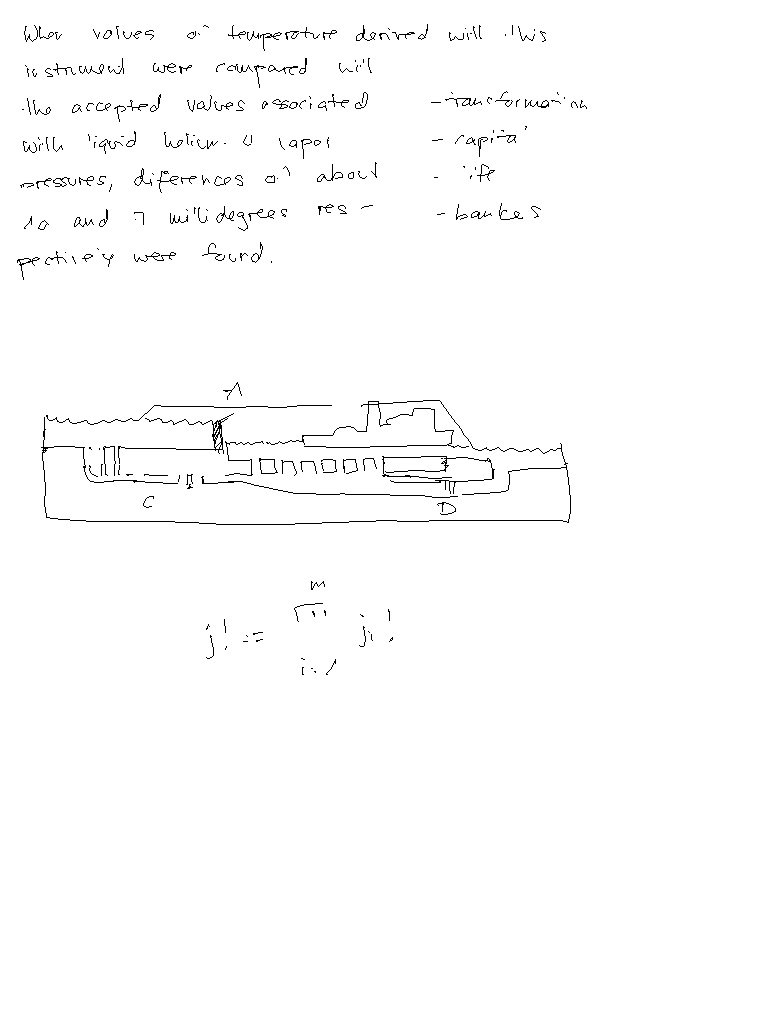 When values of temperature derived with this
instrument were compared with
the accepted values associated
with liquid helium-4 vapor
pressures, diferences of about
10 and 7 millidegrees res-
pectively were found.
- transformation
- capital
- life
- bankes
A
C
D
m
j! = ∏ ji!
i=1